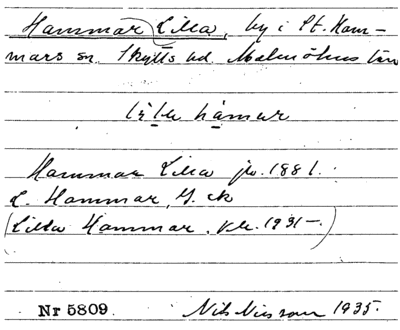 Hammar Lilla, by i St. Ham-
mars sn. Skytts hd. Malmöhus län
lịḷḷe hạmar
Hammar Lilla jb. 1881.
L. Hammar, G. ek
(Lilla Hammar. 1931-.)
Nr 5809. Nils Nilsson 1935.